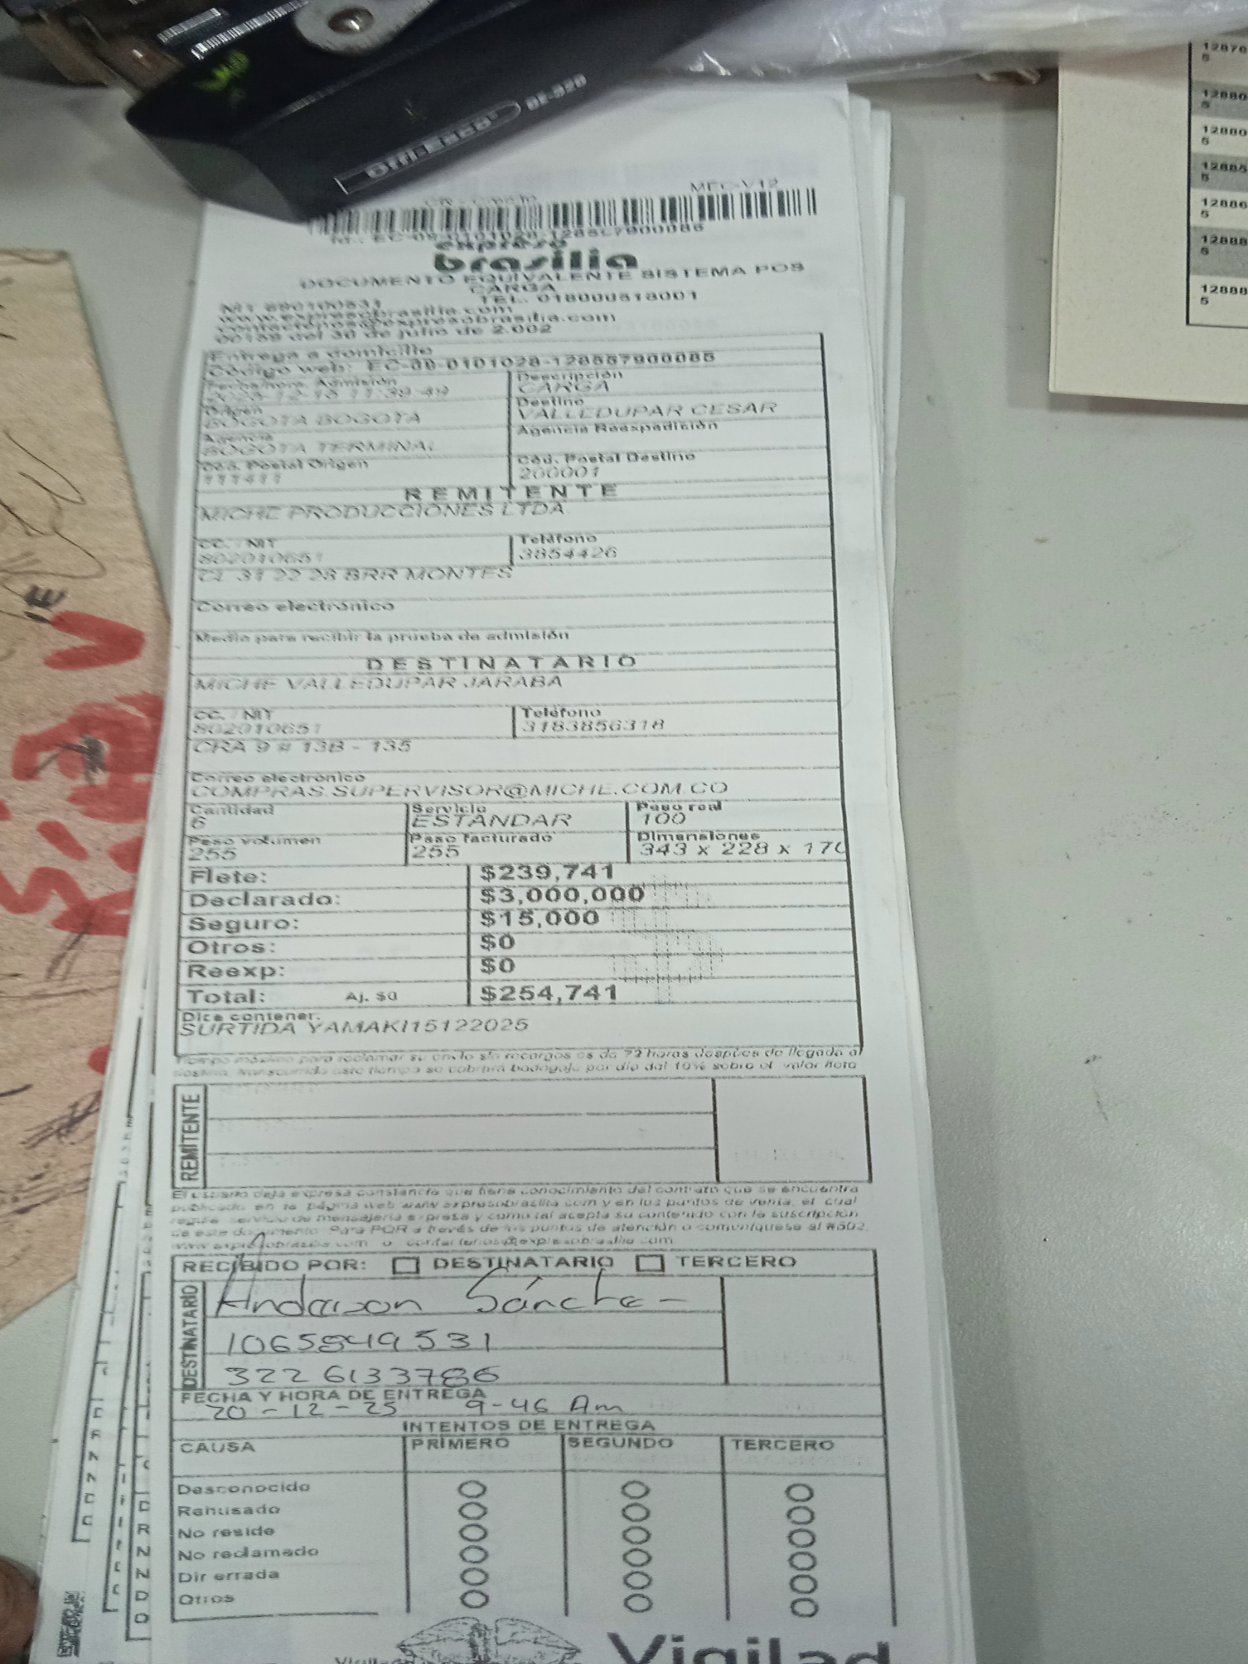 Offi-Esco
OE-326
MEC-V12
expreso
brasilia
DOCUMENTO EQUIVALENTE SISTEMA POS
CARGA
NIT 890100531 TEL. 018000518001
www.expresobrasilia.com
contactenos@expresobrasilia.com
00159 del 30 de julio de 2.002
Entrega a domicilio
Código web: EC-09-0101028-128567900085
Fecha/hora Admisión Descripción
2025-12-15 11:39:49 CARGA
Origen Destino
BOGOTA BOGOTA VALLEDUPAR CESAR
Agencia Agencia Reexpedición
BOGOTA TERMINAL
Cód. Postal Origen Cód. Postal Destino
111411 200001
REMITENTE
MICHE PRODUCCIONES LTDA
CC. / NIT Teléfono
802010651 3854426
CL 31 22 28 BRR MONTES
Correo electrónico
Medio para recibir la prueba de admisión
DESTINATARIO
MICHE VALLEDUPAR JARABA
CC. / NIT Teléfono
802010651 3183856318
CRA 9 # 13B - 135
Correo electrónico
COMPRAS.SUPERVISOR@MICHE.COM.CO
Cantidad Servicio Peso real
6 ESTÁNDAR 100
Peso volumen Peso facturado Dimensiones
255 255 343 x 228 x 170
Flete: $239,741
Declarado: $3,000,000
Seguro: $15,000
Otros: $0
Reexp: $0
Total: Aj. $0 $254,741
Dice contener:
SURTIDA YAMAKI15122025
Tiempo máximo para reclamar su envío sin recargos es de 72 horas después de llegada a
destino, transcurrido este tiempo se cobrará bodegaje por día del 10% sobre el valor flete
REMITENTE
El usuario deja expresa constancia que tiene conocimiento del contrato que se encuentra
publicado en la página web www.expresobrasilia.com y en los puntos de venta, el cual
regula servicio de mensajería expresa y como tal acepta su contenido con la suscripción
de este documento. Para PQR a través de los puntos de atención o comuníquese al #602,
www.expresobrasilia.com o contactenos@expresobrasilia.com
RECIBIDO POR: DESTINATARIO TERCERO
DESTINATARIO
Anderson Sánche
1065849531
3226133786
FECHA Y HORA DE ENTREGA
20-12-25 9-46 Am
INTENTOS DE ENTREGA
CAUSA PRIMERO SEGUNDO TERCERO
Desconocido
Rehusado
No reside
No reclamado
Dir errada
Otros
Vigilad